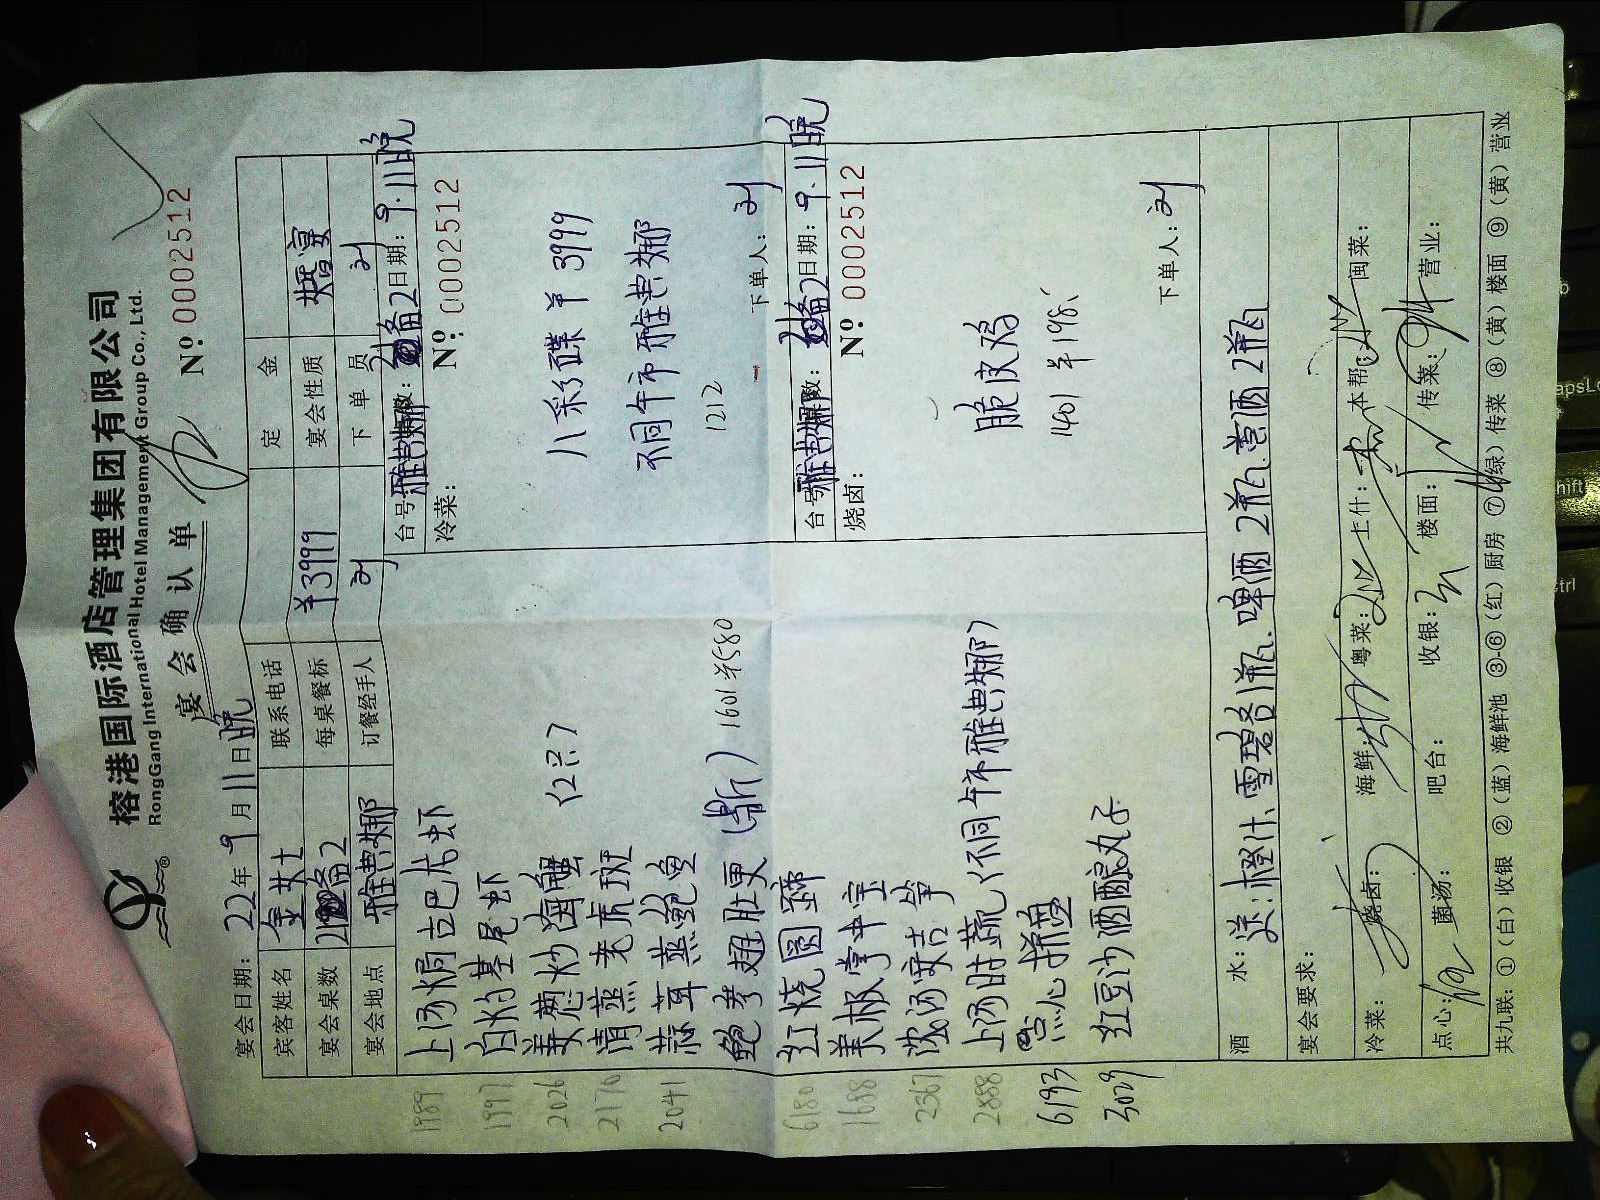 榕港国际酒店管理集团有限公司
RongGang International Hotel Management Group Co., Ltd.
宴会确认单
Nº 0002512
宴会日期: 22年 9月 11日 晚
宾客姓名 金女士 联系电话 定金
宴会桌数 备2 每桌餐标 ¥3999 宴会性质 婚宴
宴会地点 雅典娜 订餐经手人 刘 下单员 刘
1989 上汤焗古巴龙虾
1997 白灼基尾虾
2026 姜葱炒海蟹 (2只)
2170 清蒸老虎斑
2041 蒜茸蒸鲍鱼
鲍参翅肚更 (鼎) 1601 ¥580
6180 红烧圆蹄
1688 美极掌中宝
2367 浓汤安吉笋
2888 上汤时蔬 (不同午市雅典娜)
6193 点心拼盘
3029 红豆沙酒酿丸子
台号 雅典娜 数: 备2 日期: 9.11晚
冷菜: Nº 0002512
八彩碟 ¥3999
不同午市雅典娜
1212
下单人: 刘
台号 雅典娜 数: 备2 日期: 9.11晚
烧卤: Nº 0002512
脆皮鸡
1401 ¥198
下单人: 刘
酒水: 送: 橙汁、雪碧各1瓶、啤酒2瓶、喜酒2瓶
宴会要求:
冷菜: 烧卤: 海鲜: 粤菜: 上什: 本帮: 闽菜:
点心: 菌汤: 吧台: 收银: 楼面: 传菜: 营业:
共九联: ①(白)收银 ②(蓝)海鲜池 ③-⑥(红)厨房 ⑦(绿)传菜 ⑧(黄)楼面 ⑨(黄)营业